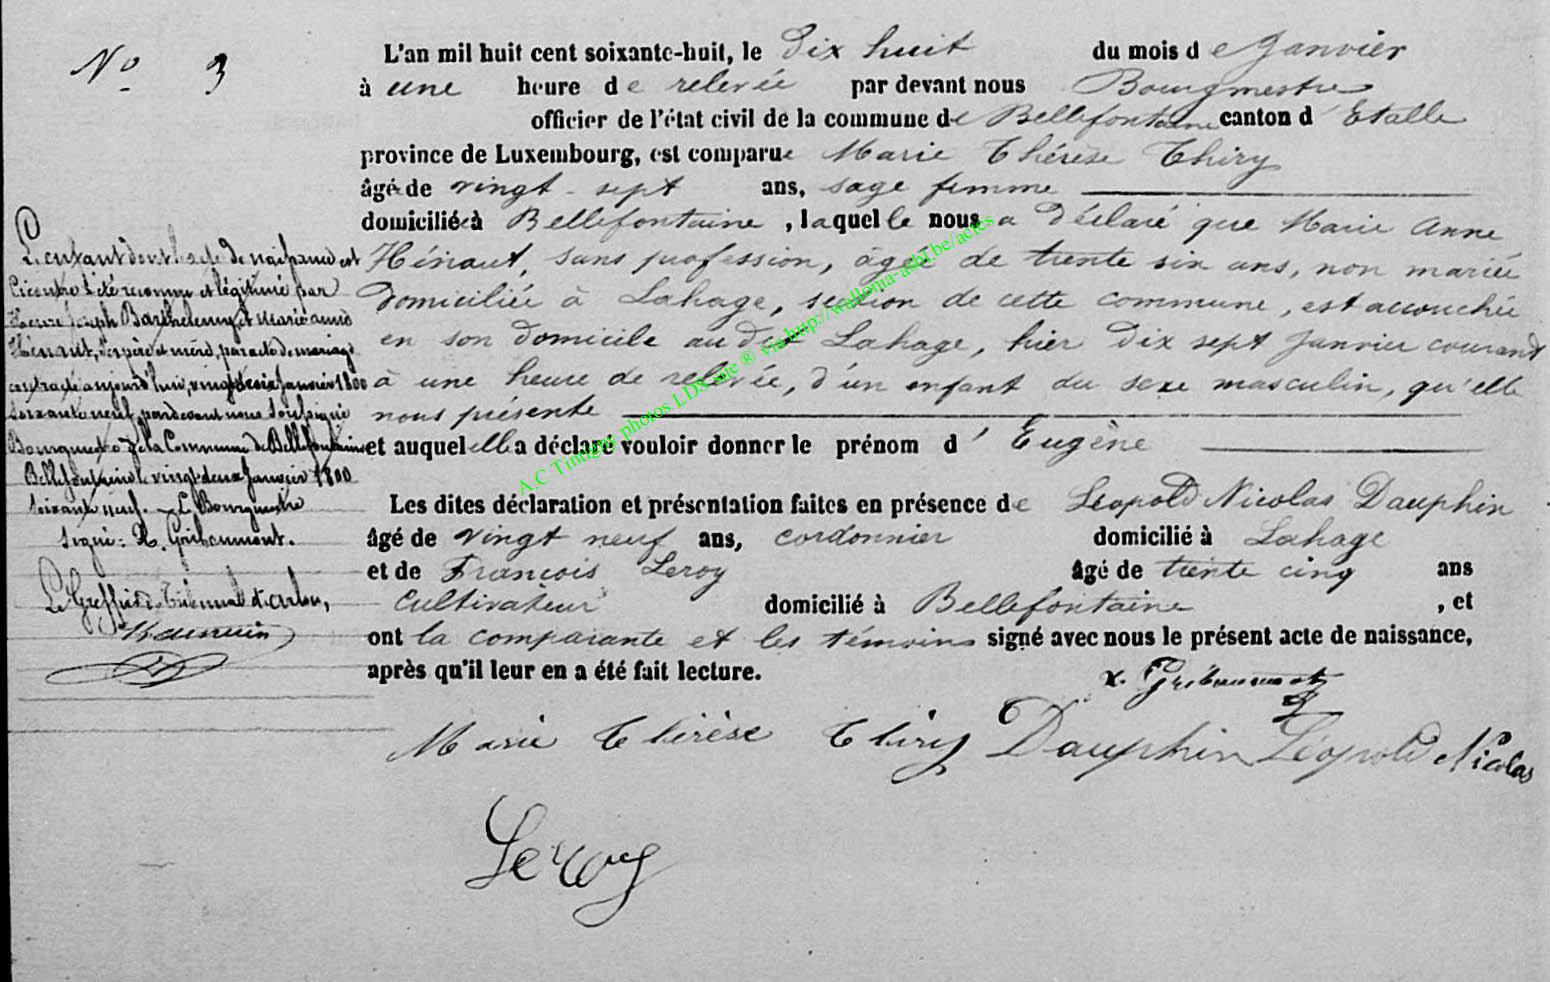 N° 3
L'an mil huit cent soixante-huit, le Dix huit du mois de Janvier
à une heure de relevée par devant nous Bourgmestre
officier de l'état civil de la commune de Bellefontaine canton d'Etalle
province de Luxembourg, est comparue Marie Thérèse Thiry
âgée de vingt-sept ans, sage femme
domiciliée à Bellefontaine, laquelle nous a déclaré que Marie Anne
Hénaut, sans profession, âgée de trente six ans, non mariée
domiciliée à Lahage, section de cette commune, est accouchée
en son domicile au dit Lahage, hier dix sept Janvier courant
à une heure de relevée, d'un enfant du sexe masculin, qu'elle
nous présente
et auquel elle a déclaré vouloir donner le prénom d'Eugène
Les dites déclaration et présentation faites en présence de Léopold Nicolas Dauphin
âgé de vingt neuf ans, cordonnier domicilié à Lahage
et de François Leroy âgé de trente cinq ans
cultivateur domicilié à Bellefontaine, et
ont la comparante et les témoins signé avec nous le présent acte de naissance,
après qu'il leur en a été fait lecture.
L'enfant dont l'acte de naissance est
ci contre a été reconnu et légitimé par
Henri Joseph Barthelemy et Marie Anne
Hénaut, ses père et mère, par acte de mariage
contracté aujourd'hui, vingt deux Janvier 1800
soixante neuf, pardevant nous soussigné
Bourgmestre de la Commune de Bellefontaine
Bellefontaine le vingt-deux Janvier 1800
soixante neuf. Le Bourgmestre
signé: X. Gribaumont.
Le Greffier du Tribunal d'Arlon,
X. Gribaumont
Marie Thérèse Thiry Dauphin Léopold Nicolas
Leroy
A.C Tintigny photos LDS site ® via http://wallonia-asbl.be/actes